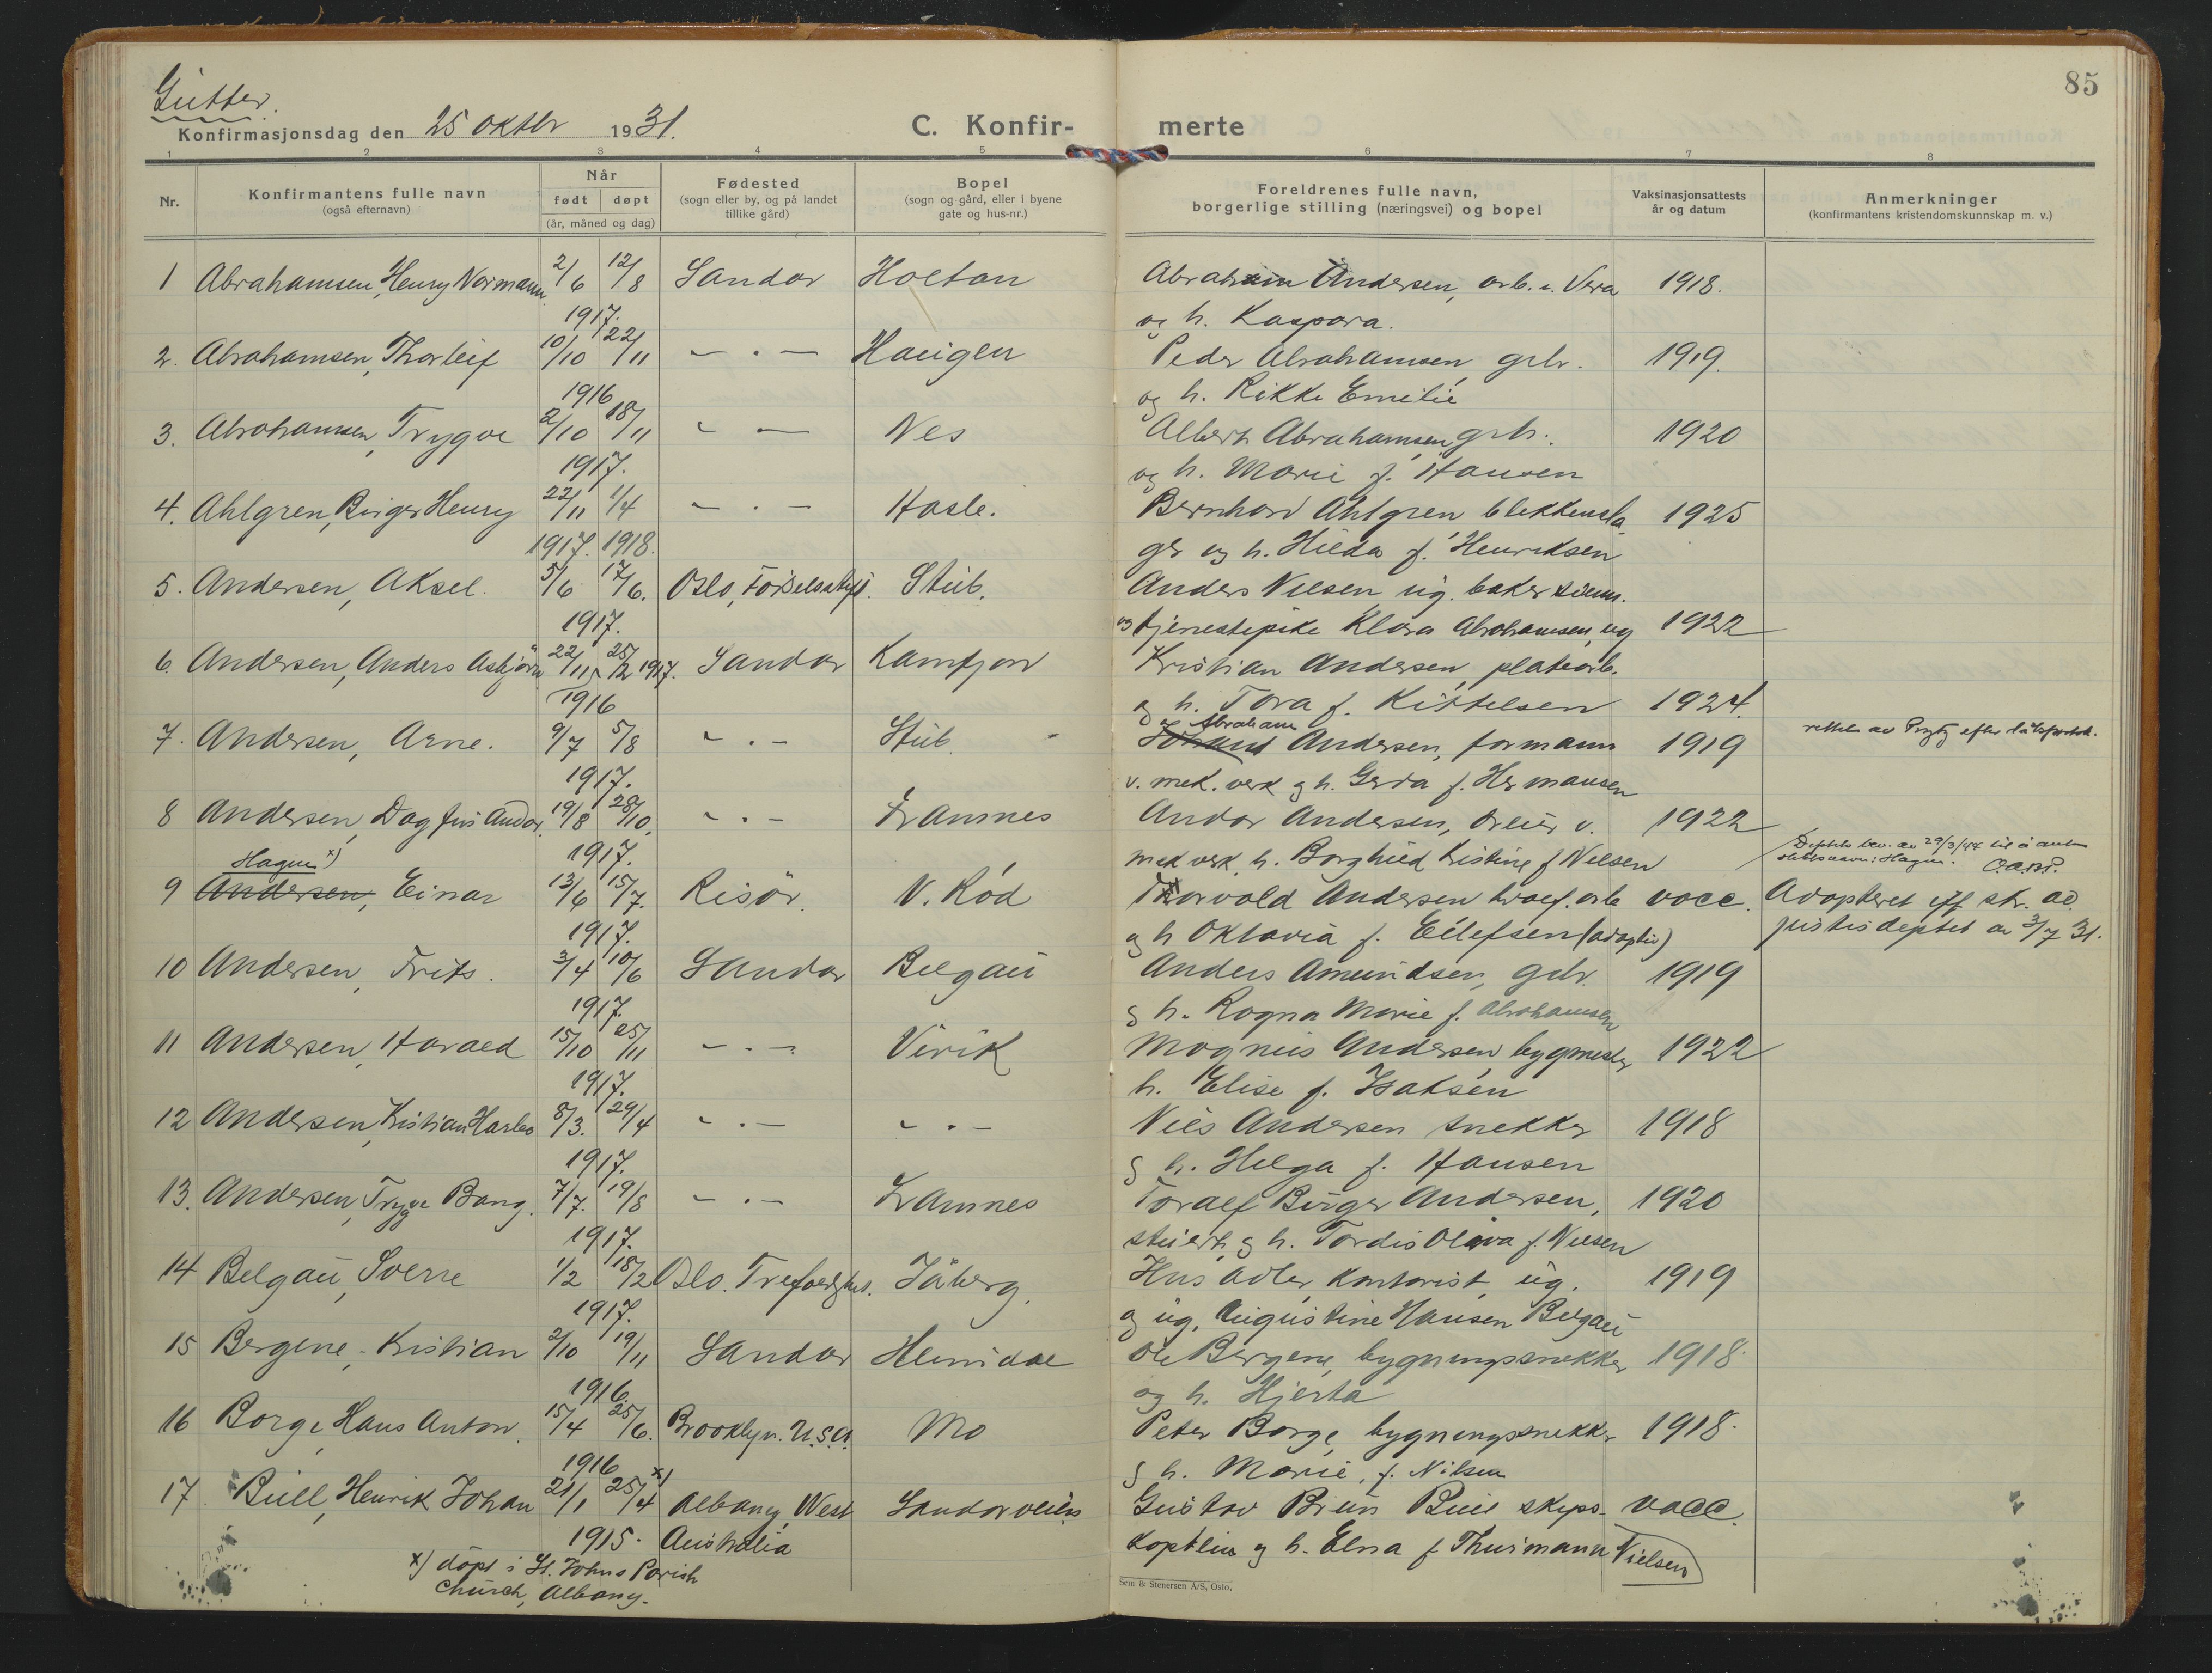 Gutter.
85
Konfirmasjonsdag den 25 oktbr 1931.
C. Konfir-
merte
1 2 3 4 5 6 7 8
Nr.
Konfirmantens fulle navn
(også efternavn)
Når
født døpt
(år, måned og dag)
Fødested
(sogn eller by, og på landet
tillike gård)
Bopel
(sogn og gård, eller i byene
gate og hus-nr.)
Foreldrenes fulle navn,
borgerlige stilling (næringsvei) og bopel
Vaksinasjonsattests
år og datum
Anmerkninger
(konfirmantens kristendomskunnskap m. v.)
1 Abrahamsen, Henry Normann 2/6 12/8 Sandar Holtan Abraham Andersen, arb. v. Vera 1918.
1917. og h. Kaspara.
2. Abrahamsen, Thorleif 10/10 22/11 — . — Haugen Peder Abrahamsen, grbr. 1919.
1916 og h. Rikke Emilie
3. Abrahamsen, Trygve 2/10 18/11 — — Nes Albert Abrahamsen, grbr. 1920
1917. og h. Marie f. Hansen
4. Ahlgren, Birger Henry 22/11 1/4 — . — Hasle. Bernhard Ahlgren blekkensla 1925
1917. 1918. ger og h. Hilda f. Henriksen
5. Andersen, Aksel. 5/6 17/6. Oslo, Fødselsstift. Stub. Anders Nilsen ug. baker
1917. og tjenestepike Klara Abrahamsen, ug 1922
6. Andersen, Anders Asbjørn 22/11 25/2 1917. Sandar Kamfjord Kristian Andersen, platearb.
1916 og h. Tora f. Kittelsen 1924.
Abraham
7. Andersen, Arne. 9/7 5/8 — . — Stub. Andersen, formann 1919 rettet av
1917. v. mek. verk og h. Gerda f. Hermansen
8 Andersen, Dagfin Andor. 19/8 28/10. — . — Framnes Andor Andersen, dreier v. 1922
1917. mek verk, h. Borghild Kristine f Nilsen
Hagen x)
Deptets bev. av 29/3/44 til å anta
slektsnavn: Hagen.
9 Andersen, Einar 13/6 15/7. Risör. N. Rød Thorvald Andersen hvalf. arb vacc. Adopteret iflg skr. ad
1917. og h Oktavia f. Eilefsen (adoptiv) justisdeptet av 3/7 31.
10 Andersen, Frits. 3/4 10/6 Sandar Belgau Anders Amundsen, grbr. 1919
1917. og h. Ragna Marie f. Abrahamsen
11 Andersen, Harald 15/10 25/11 — . — Virik Magnus Andersen, bygmester 1922
1917. h. Elise f. Isaksen
12 Andersen, Kristian Harbo 8/3. 29/4 — . — — . — Nils Andersen snekker 1918
1917. og h. Helga f. Hansen
13. Andersen, Trygve Bang. 7/7. 19/8 — . — Framnes Toralf Birger Andersen, 1920
1917. stuert, og h. Tordis Olava f. Nilsen
14 Belgau, Sverre 1/2 18/2 Oslo. Jåberg. Adler, kontorist, ug. 1919
1917. og ug. Augustine Hansen Belgau
15 Bergene, Kristian 2/10 19/11 Sandar Unneberg Ole Bergene, bygningssnekker 1918.
1916. og h. Hjerta
16 Borge, Hans Anton. 15/4 25/6. Brooklyn. U.S.A. Mo Peter Borge, bygningssnekker 1918.
1916 og h. Marie, f. Nilsen
17. Bull, Henrik Johan 21/1 25/4 x) Albany, West Sandarveien Gustav Brun Bull skips- vacc.
1915. Australia kaptein og h. Elna f Thurmann Nielsen
x) døpt i St. Johns Parish
Church, Albany.
Sem & Stenersen A/S, Oslo.